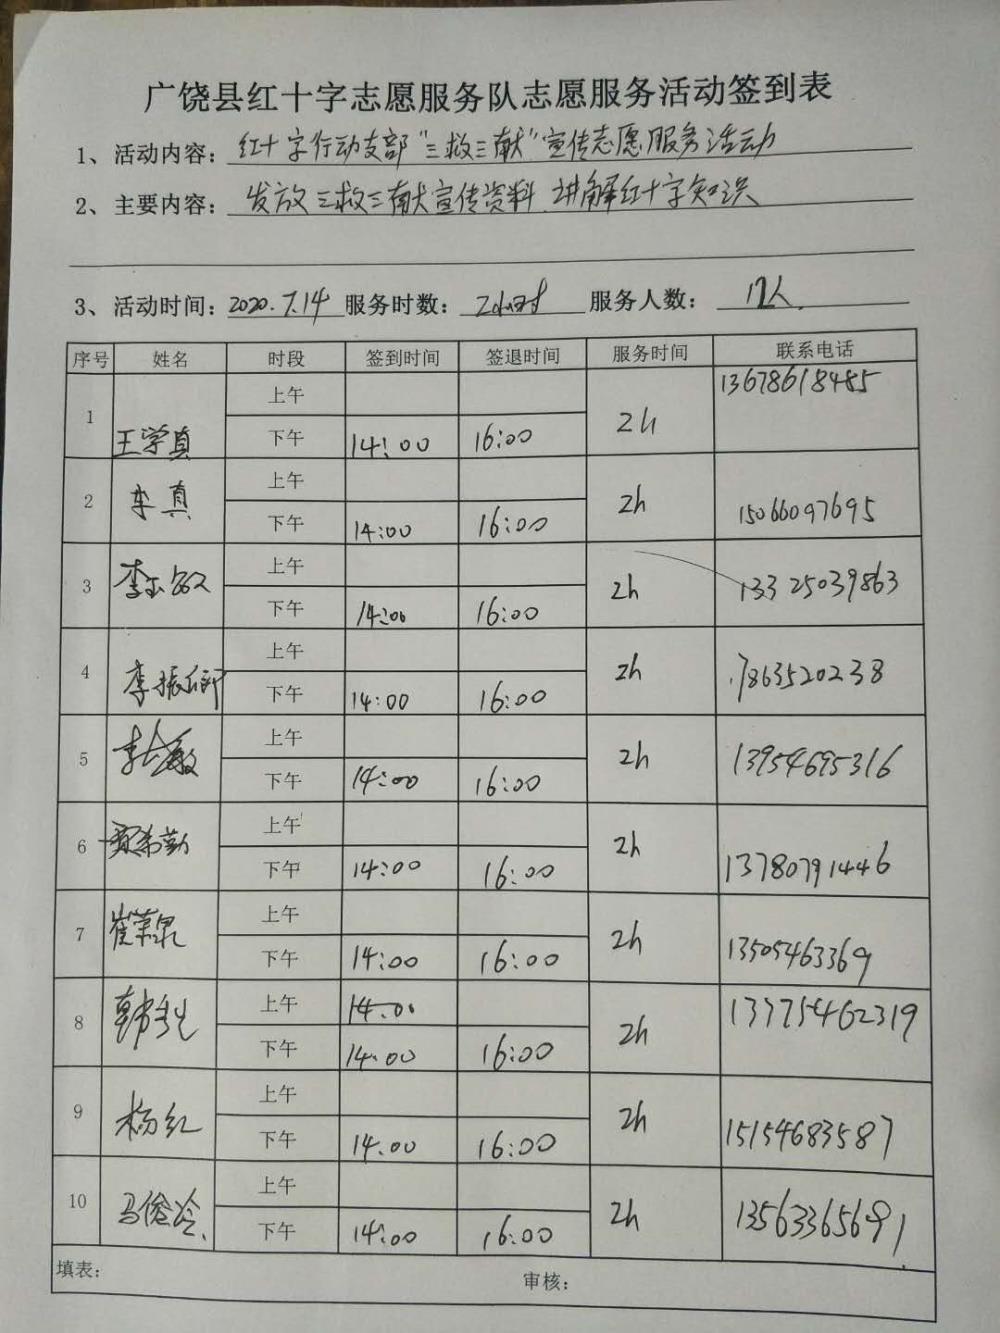 广饶县红十字志愿服务队志愿服务活动签到表
1、活动内容：红十字行动支部“三救三献”宣传志愿服务活动
2、主要内容：发放三救三献宣传资料、讲解红十字知识
3、活动时间：2020.7.14 服务时数：2小时 服务人数：12人
序号 姓名 时段 签到时间 签退时间 服务时间 联系电话
1 王学真 上午 2h 13678618485
下午 14:00 16:00
2 李真 上午 2h 15066097695
下午 14:00 16:00
3 李玉敏 上午 2h 13325039863
下午 14:00 16:00
4 李振 上午 2h 7863520238
下午 14:00 16:00
5 上午 2h 13954695316
下午 14:00 16:00
6 贾希勤 上午 2h 13780791446
下午 14:00 16:00
7 崔 上午 2h 13505463369
下午 14:00 16:00
8 韩 上午 14.00 2h 13375462319
下午 14.00 16:00
9 杨红 上午 2h 15154683587
下午 14.00 16:00
10 马俊冷 上午 2h 13563365691
下午 14:00 16:00
填表： 审核：